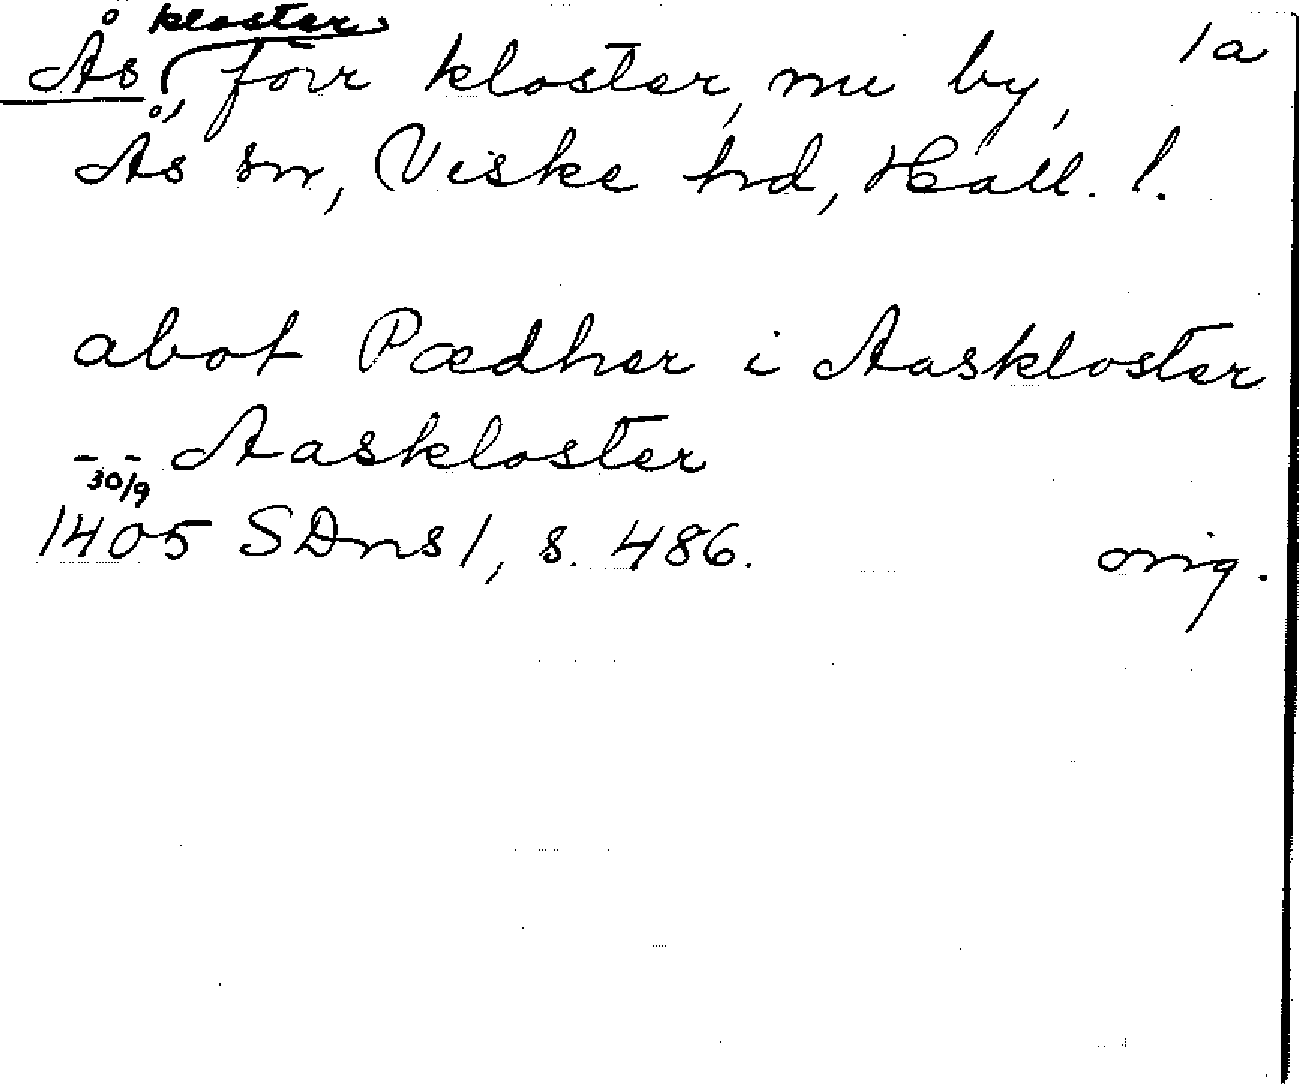 Ås kloster, förr kloster, nu by, 1a
Ås sn, Viske hd, Hall. l.
abot Pædher i Aaskloster
- - Aaskloster
30/9
1405 SDns 1, s. 486. orig.